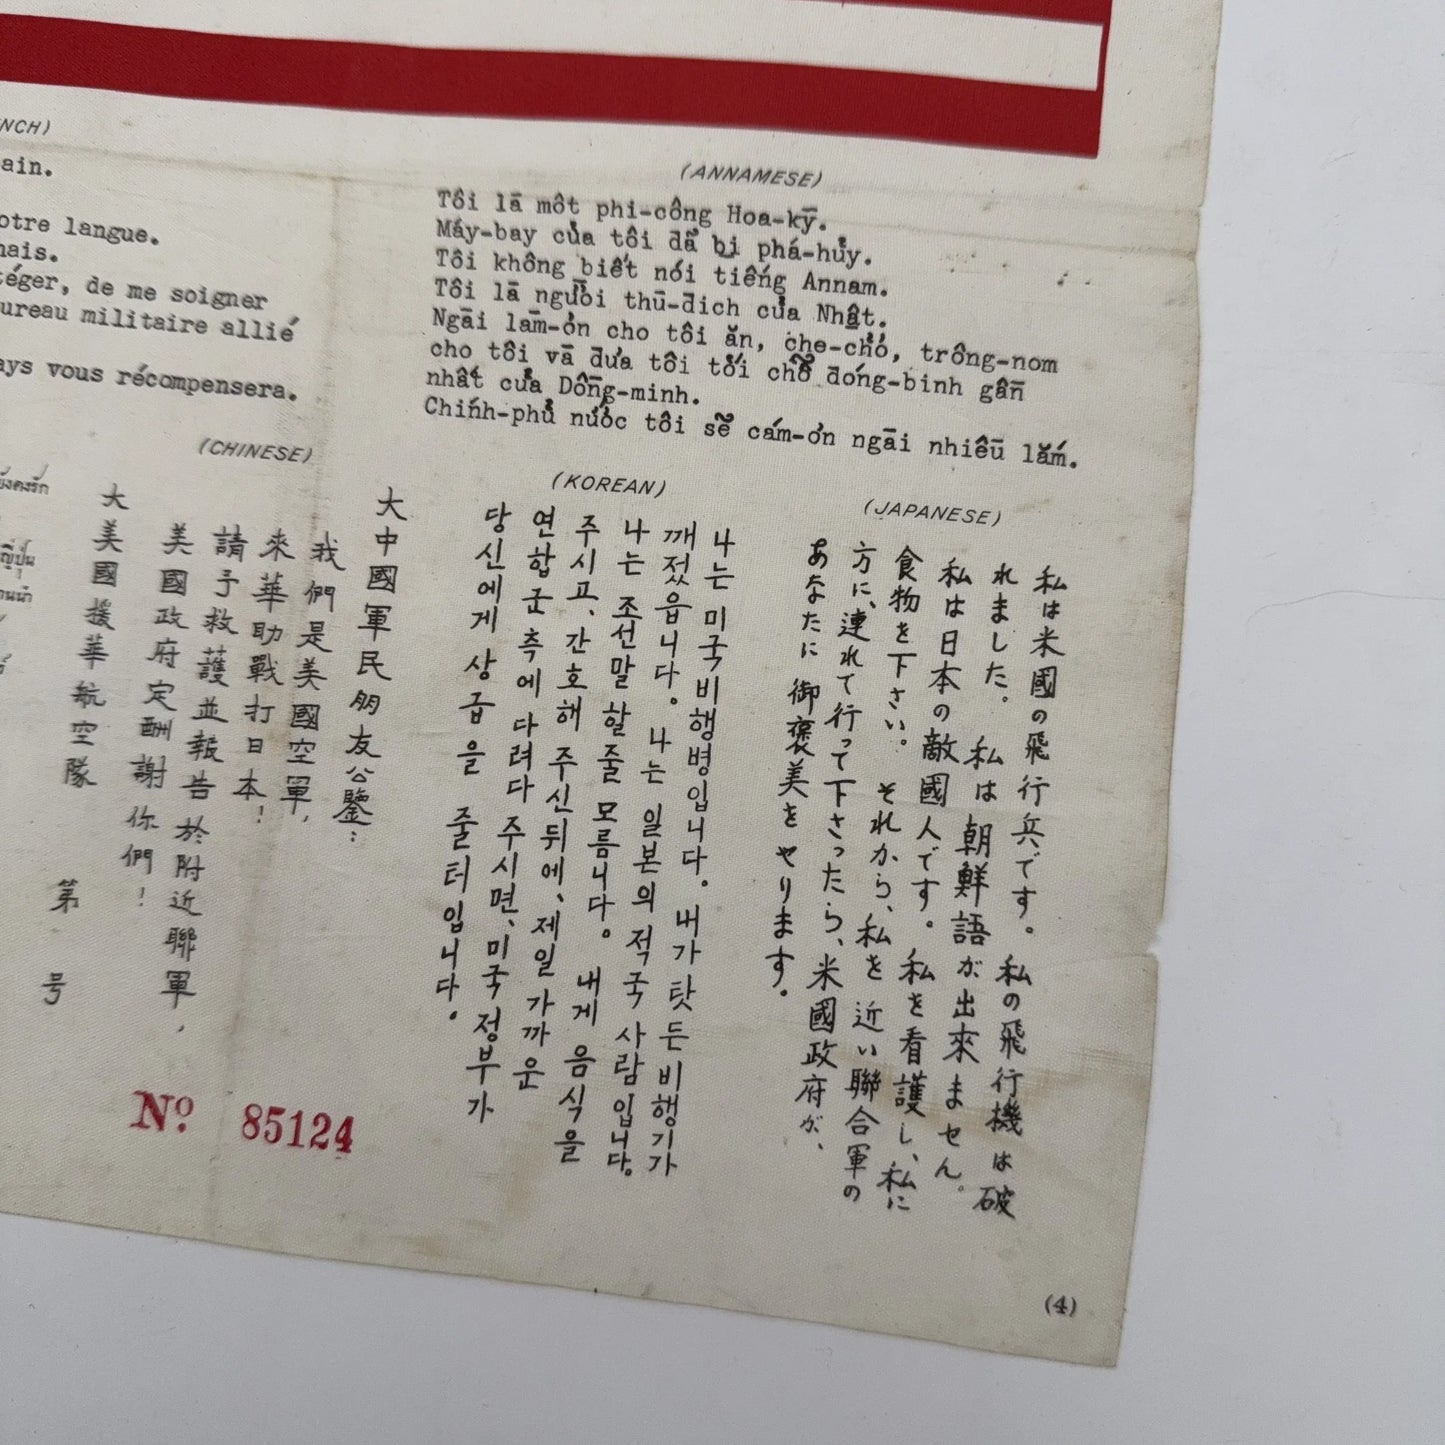 NCH)
ain.
otre langue.
nais.
téger, de me soigner
ureau militaire allié
ays vous récompensera.
(ANNAMESE)
Tôi lā môt phi-công Hoa-kỹ.
Máy-bay của tôi đẩ bị phá-hủy.
Tôi không biết nói tiếng Annam.
Tôi lā người thū-đich của Nhật.
Ngāi lām-ơn cho tôi ăn, che-chở, trông-nom
cho tôi vā đưa tôi tới chỗ đóng-binh gần
nhất của Dồng-minh.
Chính-phủ nước tôi sẽ cám-ơn ngāi nhiều lắm.
(CHINESE)
大中國軍民朋友公鑒：
我們是美國空軍，
來華助戰打日本！
請予救護並報告於附近聯軍，
美國政府定酬謝你們！
大美國援華航空隊
第 号
(KOREAN)
나는 미국비행병입니다. 내가 탓든 비행기가
깨젔읍니다. 나는 일본의 적국 사람입니다.
나는 조선말 할줄 모릅니다. 내게 음식을
주시고, 간호해 주신뒤에, 제일 가까운
연합군 측에 다려다 주시면, 미국 정부가
당신에게 상급을 줄터입니다.
(JAPANESE)
私は米國の飛行兵です。私の飛行機は破
れました。私は朝鮮語が出來ません。
私は日本の敵國人です。私を看護し、私に
食物を下さい。それから、私を近い聯合軍の
方に、連れて行って下さったら、米國政府が、
あなたに御褒美をやります。
ยังคงรัก
ญี่ปุ่น
No. 85124
(4)